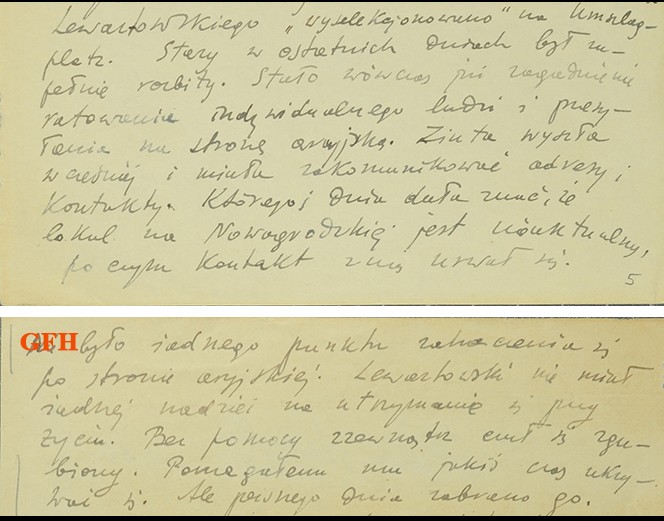 Lewartowskiego „wyselekcjonowano" na Umschlag-
platz. Stary w ostatnich dniach był zu-
pełnie rozbity. Stało wówczas już zagadnienie
ratowania indywidualnego ludzi i przesy-
łania na stronę aryjską. Ziuta wyszła
wcześniej i miała zakomunikować adresy i
kontakty. Któregoś dnia dała znać, że
lokal na Nowogrodzkiej jest nieaktualny,
po czym kontakt z nią urwał się.
5
GFH
było żadnego punktu zahaczenia się
po stronie aryjskiej. Lewartowski nie miał
żadnej nadziei na utrzymanie się przy
życiu. Bez pomocy zzewnątrz czuł się zgu-
biony. Pomagałem mu jakiś czas ukry-
wać się. Ale pewnego dnia zabrano go.